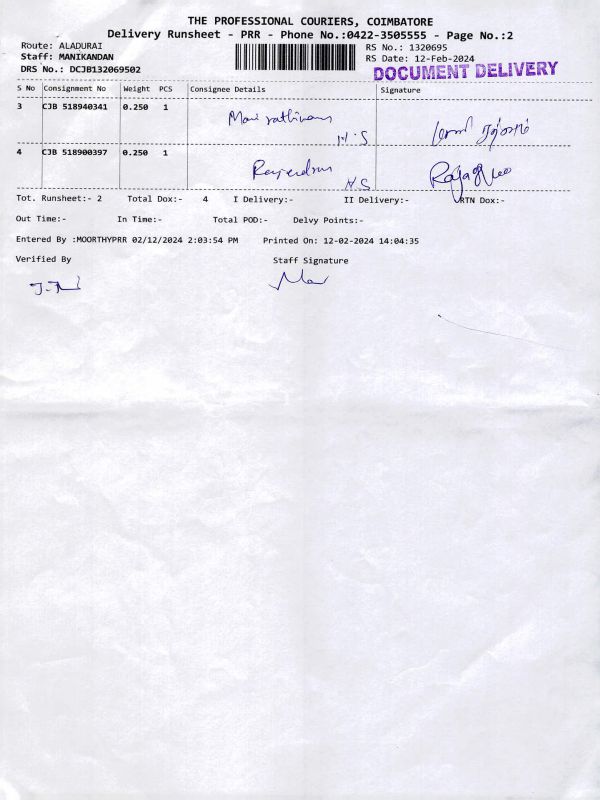 THE PROFESSIONAL COURIERS, COIMBATORE
Delivery Runsheet - PRR - Phone No.:0422-3505555 - Page No.:2
Route: ALADURAI
Staff: MANIKANDAN
DRS No.: DCJB132069502
RS No.: 1320695
RS Date: 12-Feb-2024
DOCUMENT DELIVERY
S No Consignment No Weight PCS Consignee Details Signature
3 CJB 518940341 0.250 1
H.S
4 CJB 518900397 0.250 1 Rajendran
H.S
Tot. Runsheet:- 2 Total Dox:- 4 I Delivery:- II Delivery:- RTN Dox:-
Out Time:- In Time:- Total POD:- Delvy Points:-
Entered By :MOORTHYPRR 02/12/2024 2:03:54 PM Printed On: 12-02-2024 14:04:35
Verified By Staff Signature